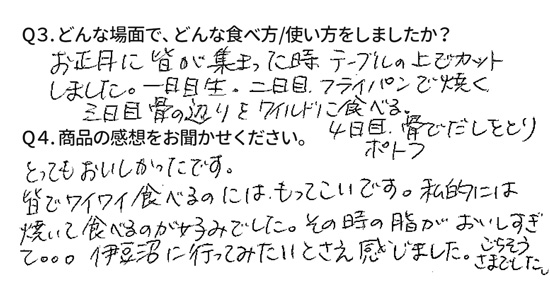 Q3.どんな場面で、どんな食べ方/使い方をしましたか？
お正月に皆が集まった時 テーブルの上でカット
しました。一日目生。二日目.フライパンで焼く
三日目骨の辺りをワイルドに食べる。
4日目.骨でだしをとり
ポトフ
Q4.商品の感想をお聞かせください。
とってもおいしかったです。
皆でワイワイ食べるのには.もってこいです。私的には
焼いて食べるのが好みでした。その時の脂がおいしすぎ
て。。。伊豆沼に行ってみたいとさえ感じました。
ごちそう
さまでした。